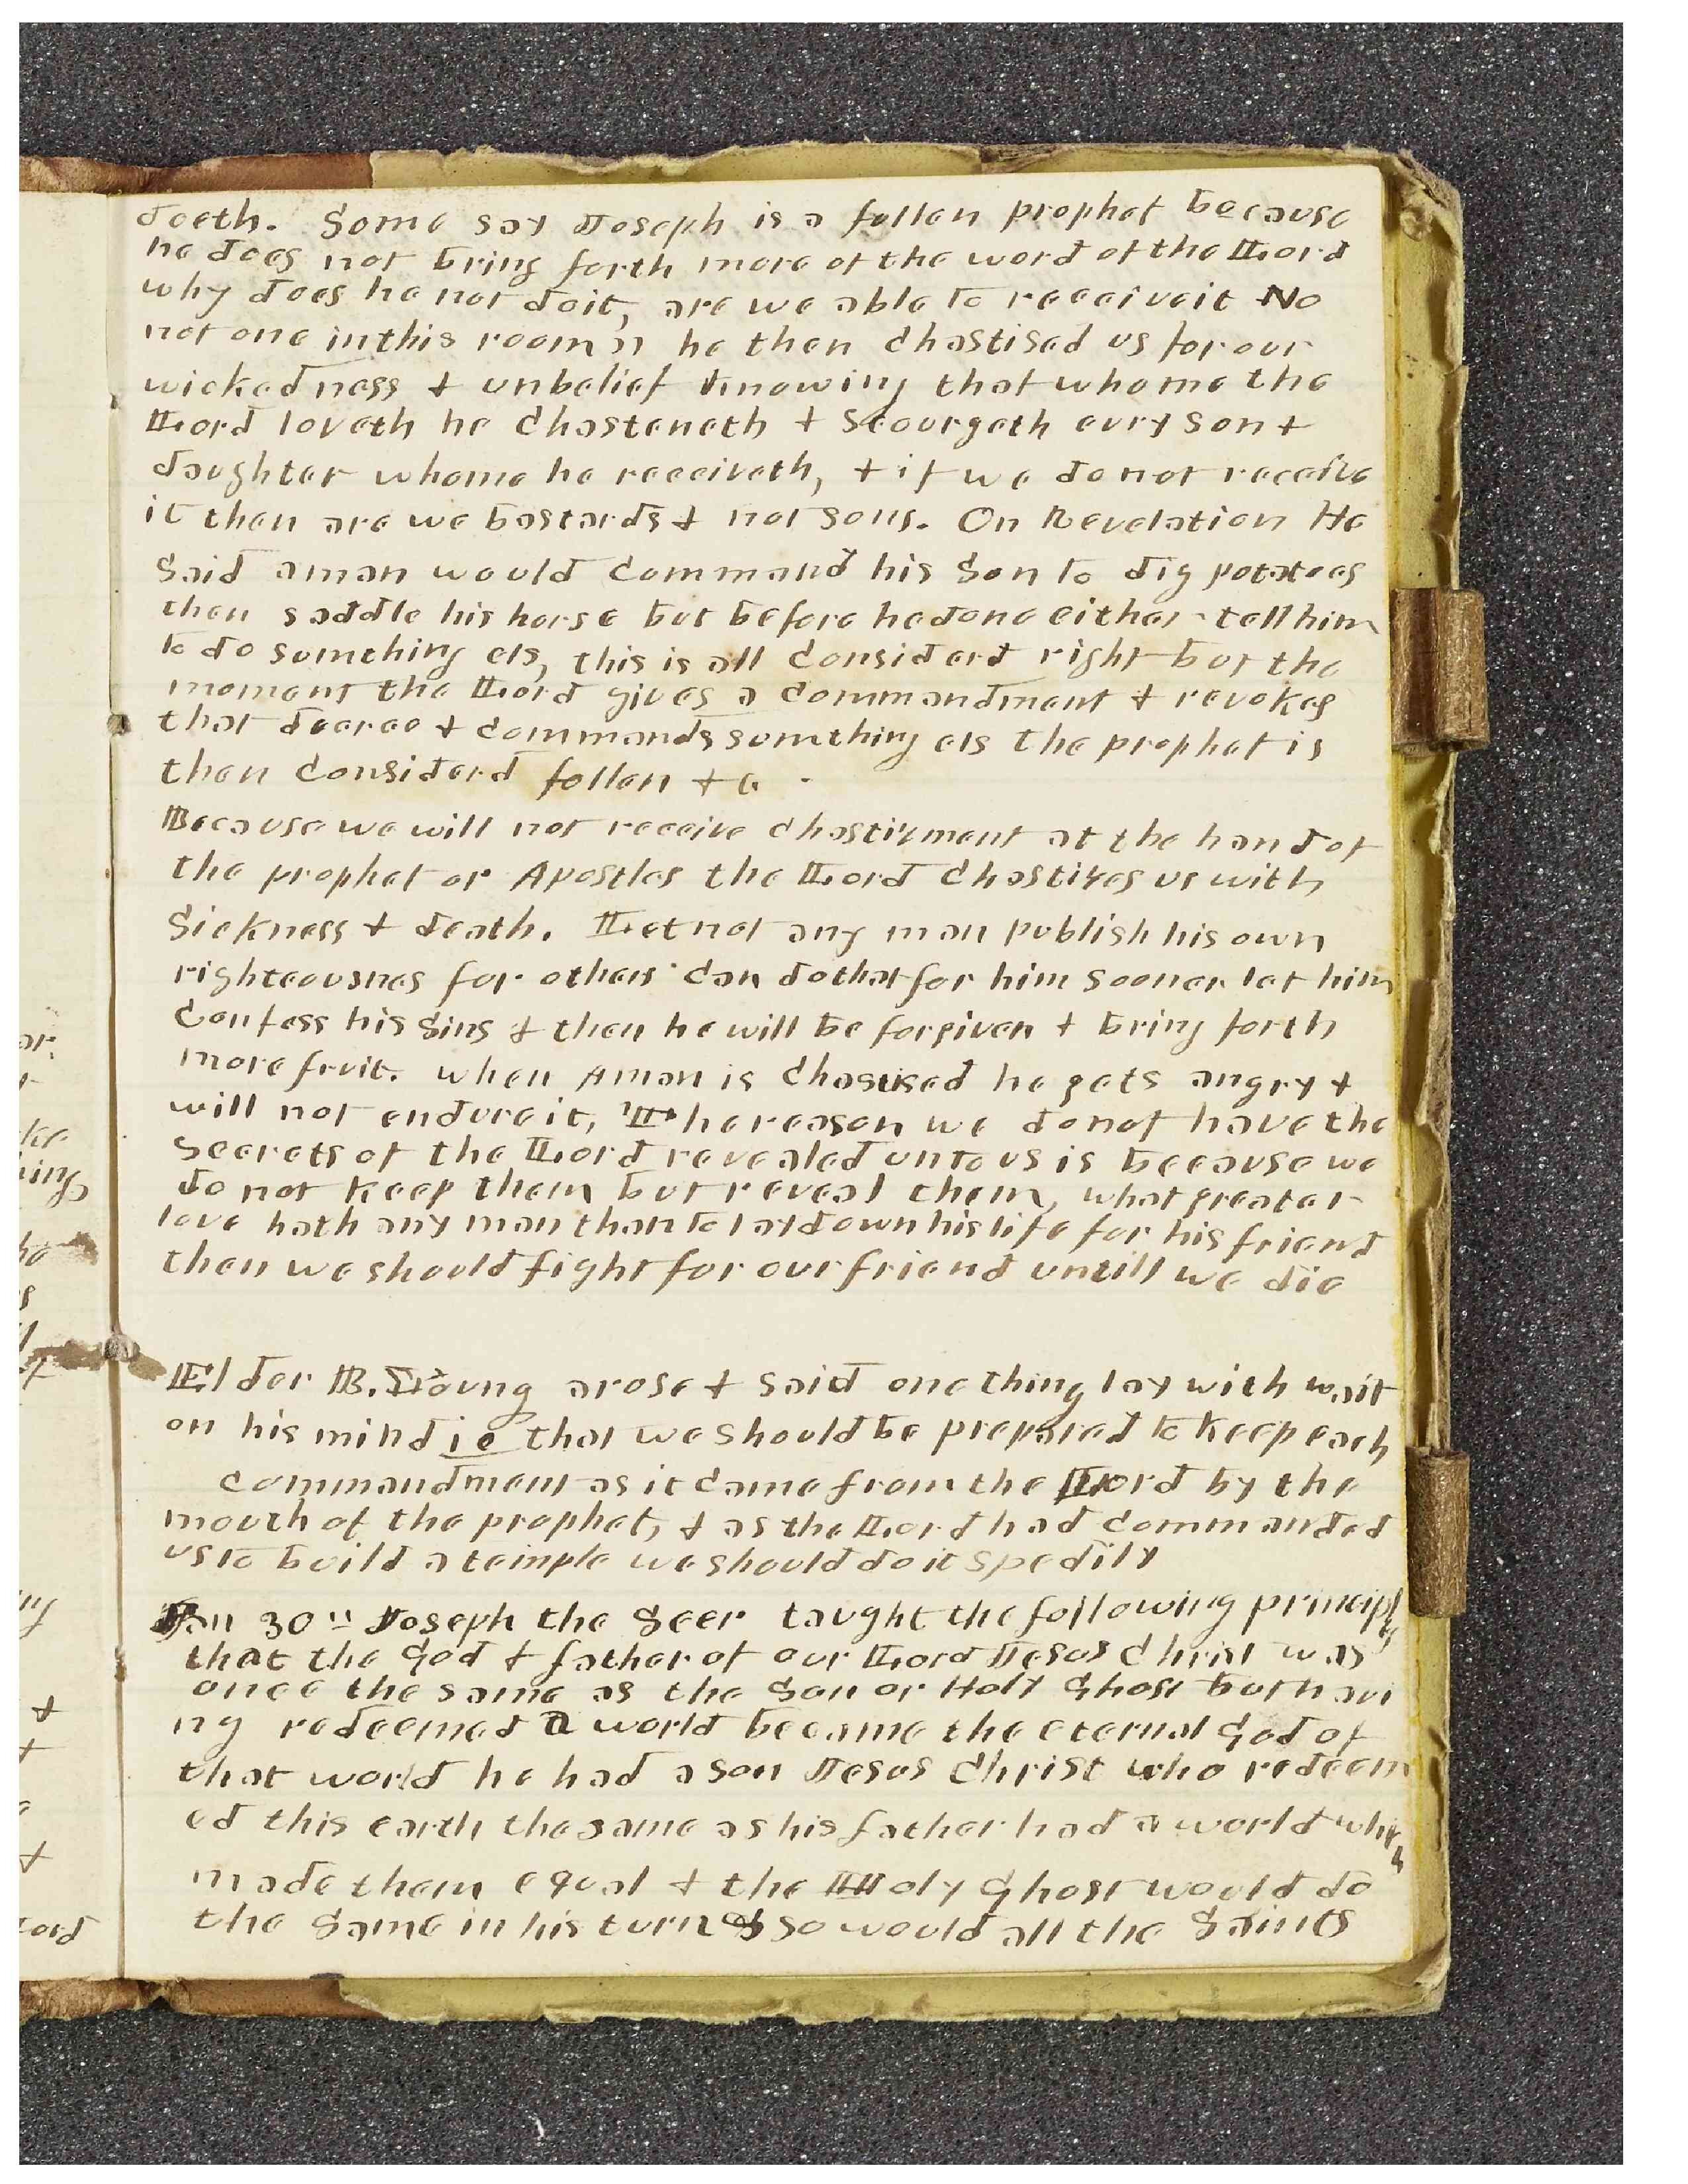 doeth. Some say Joseph is a fallen prophet because
he does not bring forth more of the word of the Lord
why does he not do it, are we able to receive it No
not one in this room)) he then chastised us for our
wickedness & unbelief knowing that whome the
Lord loveth he chasteneth & scourgeth evry son &
daughter whome he receiveth, & if we do not receive
it then are we bastards & not sons. On Revelation He
said a man would command his son to dig potatoes
then saddle his horse but before he done either tell him
to do sumthing els, this is all considerd right but the
moment the Lord gives a commandment & revokes
that decree & commands sumthing els the prophet is
then considerd fallen & c.
Because we will not receive chastizment at the hand of
the prophet or Apostles the Lord chastizes us with
sickness & death. Let not any man publish his own
righteousnes for others can do that for him sooner let him
confess his sins & then he will be forgiven & bring forth
more fruit. when A man is chastised he gets angry &
will not endure it, The reason we do not have the
secrets of the Lord revealed unto us is because we
do not keep them but reveal them, what greater
love hath any man than to lay down his life for his friend
then we should fight for our friend untill we die
Elder B. Young arose & said one thing lay with wait
on his mind ie that we should be prepared to keep each
commandment as it came from the Lord by the
mouth of the prophet, & as the Lord had commanded
us to build a temple we should do it spedily
Jan 30" Joseph the Seer taught the following principles
that the God & father of our Lord Jesus Christ was
once the same as the Son or Holy Ghost but havi
ng redeemed a world became the eternal God of
that world he had a son Jesus Christ who redeem
ed this earth the same as his father had a world which
made them equal & the Holy Ghost would do
the same in his turn & so would all the Saints